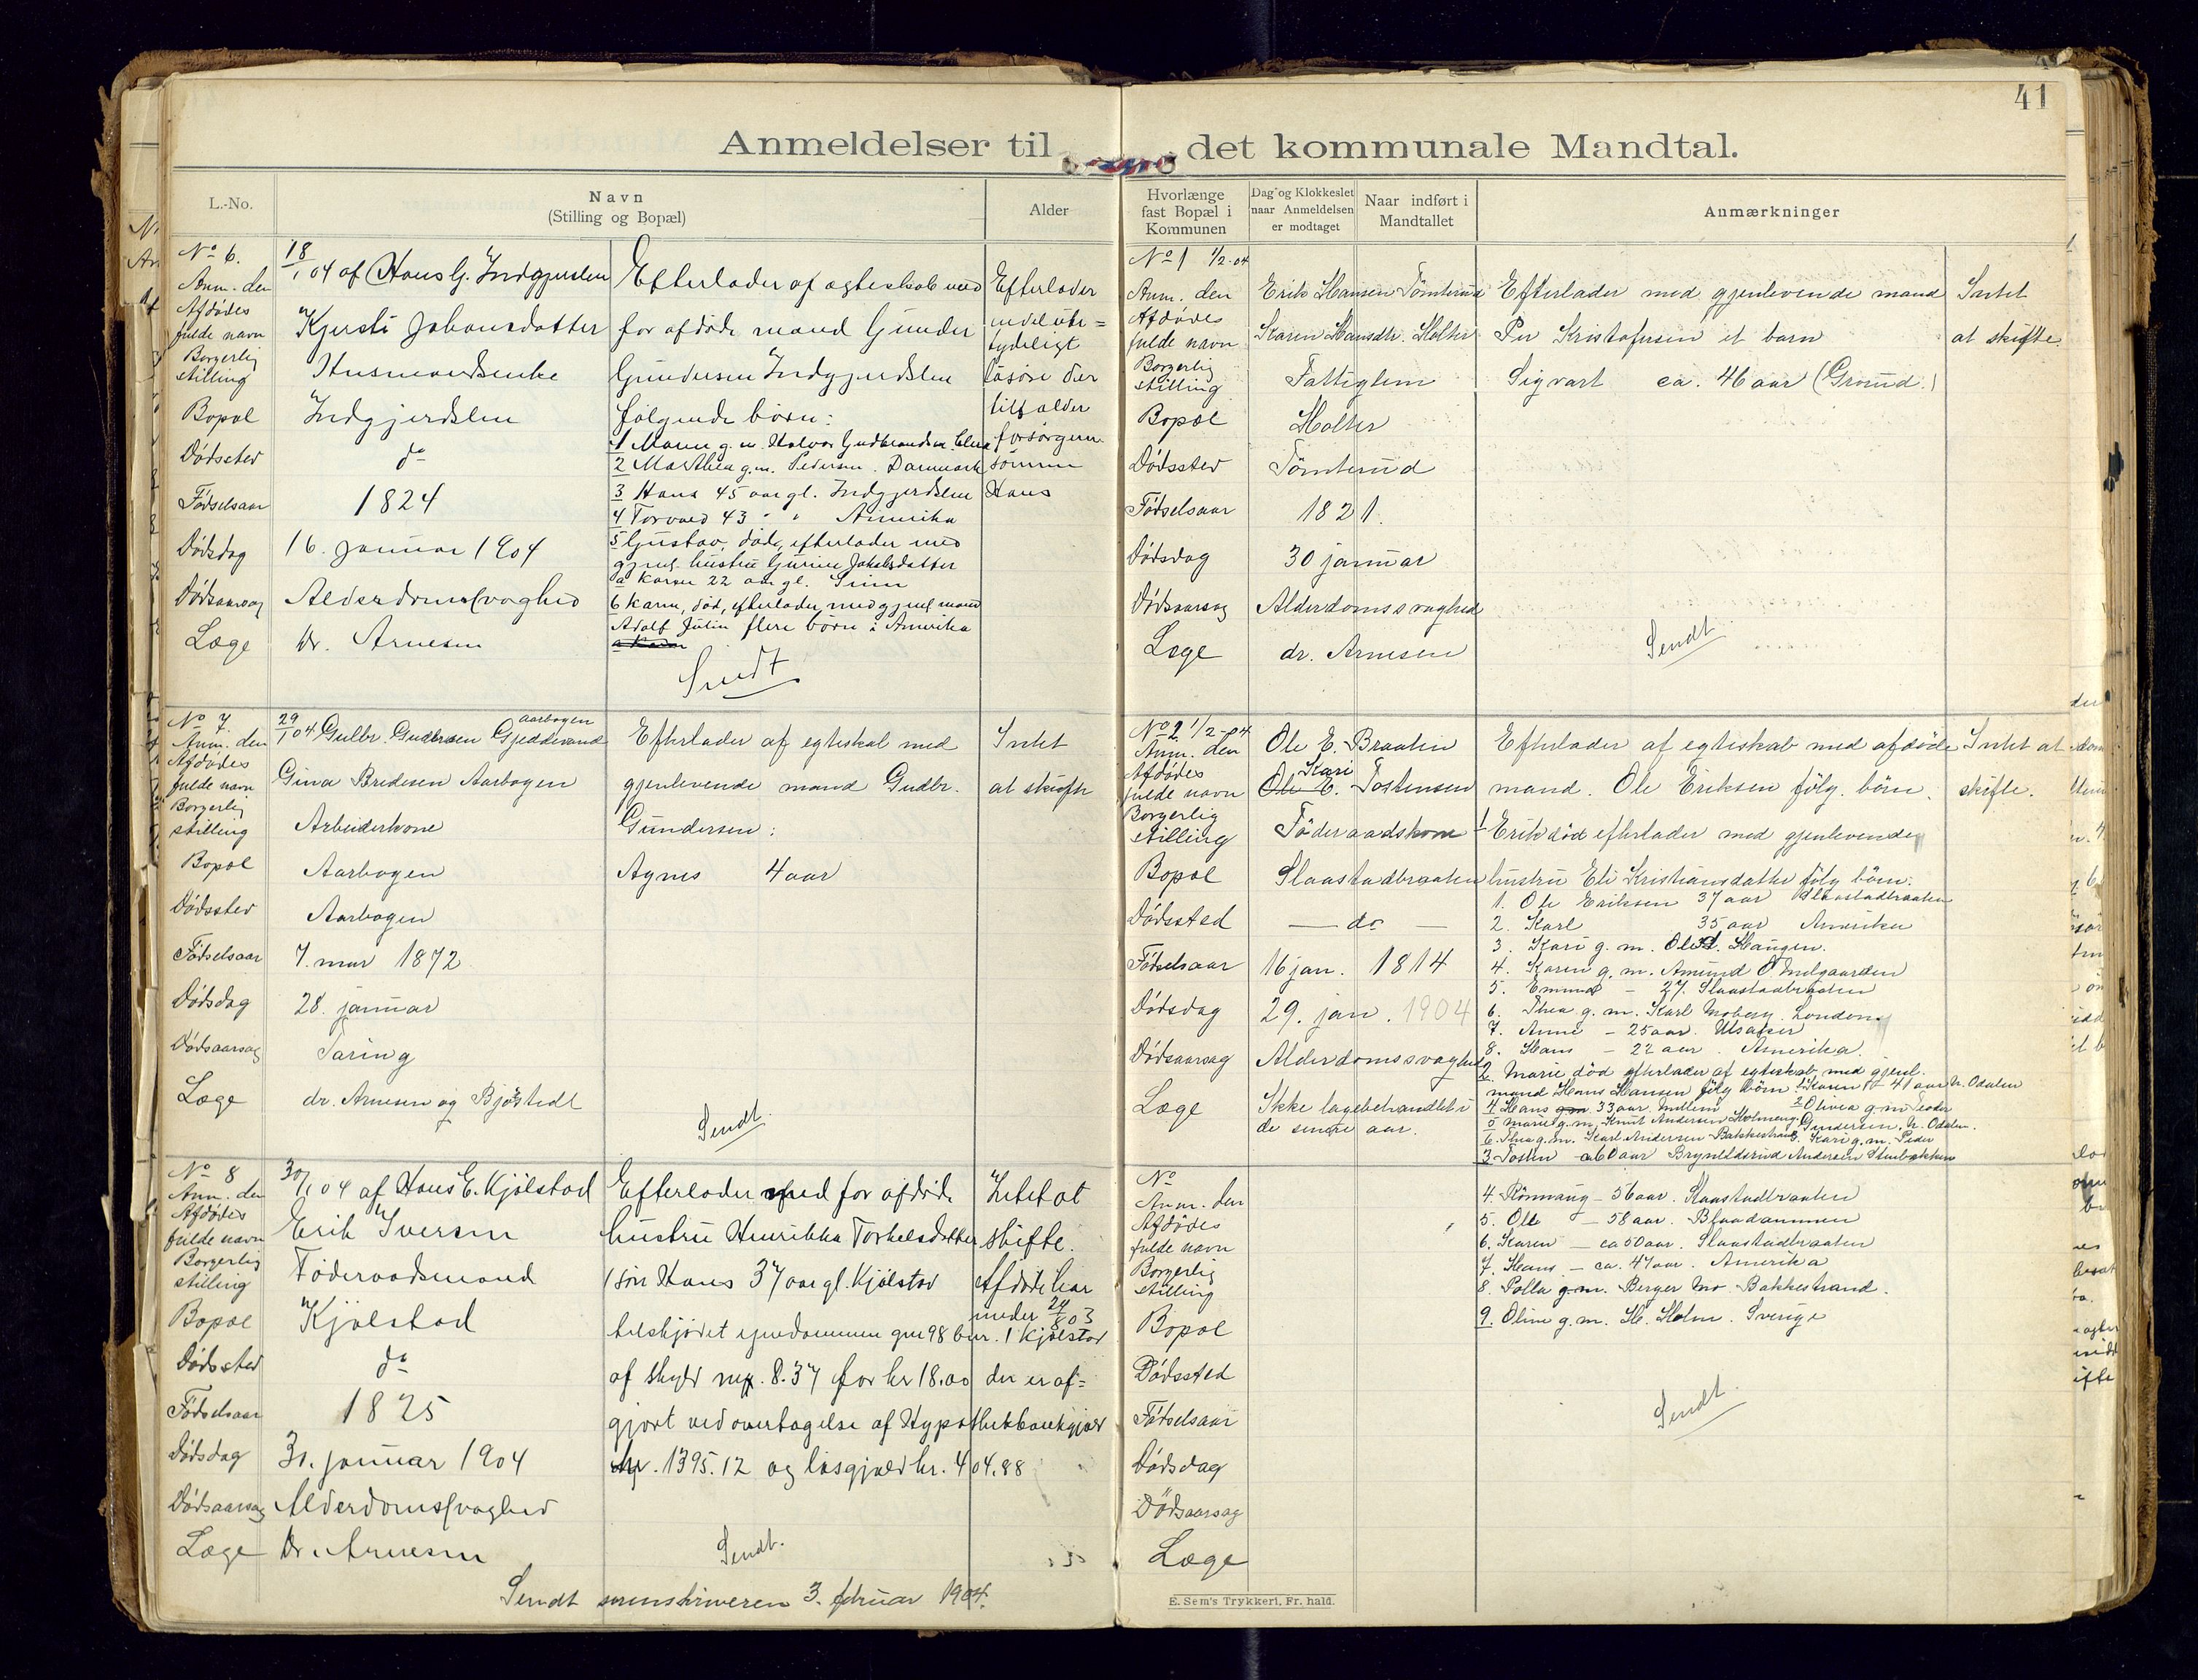 41
Anmeldelser til det kommunale Mandtal.
L.-No.
Navn
(Stilling og Bopæl)
Alder
Hvorlænge fast Bopæl i Kommunen
Dag og Klokkeslet naar Anmeldelsen er modtaget
Naar indført i Mandtallet
Anmærkninger
No 6.
Anm. den 18/1 04 af Hans G. Indgjerdslen
Afdødes fulde navn Kjersti Johansdatter
Borgerlig stilling Husmandsenke
Bopæl Indgjerdslen
Dødssted do
Fødselsaar 1824
Dødsdag 16. januar 1904
Dødsaarsag Alderdomssvaghed
Læge Dr. Arnesen
Efterlader af ægteskab med
før afdøde mand Gunder
Gundersen Indgjerdslen
følgende børn:
1 Maren g. m. Halvor Gudbrandsen
2 Marthea g.m. Pedersen. Danmark
3 Hans 45 aar gl. Indgjerdslen
4 Torvald 43 " " Amerika
5 Gustav, død, efterlader med
gjenl. hustru Gurine Jakobsdatter
a Karen 22 aar gl.
6 Karen, død, efterlader med gjenl. mand
Adolf Julin flere børn i Amerika
Sendt
Efterlader
endel ube=
tydeligt
løsøre der
tilfalder
forsørgeren
sønnen
Hans
No 7.
Anm. den 29/1 04 Gulbr. Gundersen Gjeddevand
Aarbogen
Afdødes fulde navn Gina Bredesen Aarbogen
Borgerlig stilling Arbeiderkone
Bopæl Aarbogen
Dødssted Aarbogen
Fødselsaar 7. mar 1872
Dødsdag 28. januar
Dødsaarsag Tæring
Læge dr. Arnesen og Bjøstedt
Efterlader af egteskab med
gjenlevende mand Gudbr.
Gundersen:
Agnes 4 aar
Sendt
Intet
at skifte
No 8
Anm. den 30/1 04 af Hans E. Kjølstad
Afdødes fulde navn Erik Iversen
Borgerlig stilling Føderaadsmand
Bopæl Kjølstad
Dødssted do
Fødselsaar 1825
Dødsdag 30. januar 1904
Dødsaarsag Alderdomssvaghed
Læge Dr. Arnesen
Efterlader med før afdøde
hustru Henrikka Torkelsdatter
1 søn Hans 37 aar gl. Kjølstad
Intet at
skifte.
Afdøde har
under
tilskjødet eiendommen gnr 98 bnr. 1 Kjølstad
af skyld mrk. 8.37 for kr 18.00 der er af=
gjort ved overtagelse af Hypothekbankgjæld
kr. 1395.12 og løsgjæld kr. 404.88
Sendt.
Sendt sorenskriveren 3. februar 1904.
No 1 1/2-04
Anm. den Erik Hansen Tømterud
Afdødes fulde navn Karen Hansdtr. Holter
Borgerlig stilling Fattiglem
Bopæl Holter
Dødssted Tømterud
Fødselsaar 1821.
Dødsdag 30 januar
Dødsaarsag Alderdomssvaghed
Læge dr. Arnesen
Efterlader med gjenlevende mand
Per Kristofersen et barn
Sigvart ca. 46 aar (Grorud.)
Sendt
Intet
at skifte.
No 2 1/2-04
Anm. den Ole E. Braaten
Afdødes fulde navn Ole E. Kari Tostensen
Borgerlig stilling Føderaadskone
Bopæl Slaastadbraaten
Dødssted — do —
Fødselsaar 16 jan. 1814
Dødsdag 29. jan. 1904
Dødsaarsag Alderdomssvaghed
Læge Ikke lægebehandlet i
de senere aar.
Efterlader af egteskab med afdøde
mand. Ole Eriksen følg. børn.
1 Erik død efterlader med gjenlevende
hustru Eli Kristiansdatter følg børn:
1. Ole Eriksen 37 aar Slaastadbraaten
2. Karl 35 aar Amerika
3. Kari g. m. Ole Haugen.
4. Karen g. m. Amund O Melgaarden
5. Emund – 27. Slaastadbraaten
6. Thea g. m. Karl Moberg. London
7. Anne – 25 aar. Ulsaker
8. Hans – 22 aar. Amerika.
2. Marie død efterlader af egteskab med gjenl.
mand Hans Hansen følg børn 1 Karen – 41 aar N. Odalen
4 Hans 33 aar. 2 Olivia g m Teodor
5 Marie g. m. Knut Andersen Holmeng. Gundersen, N. Odalen.
6. Thea g. m. Karl Andersen Bakkestrand 3. Kari g. m. Peder
3 Tosten ca 60 aar Brynildsrud Andersen Stenbakken
4. Rønnaug – 56 aar. Slaastadbraaten
5. Ole – 58 aar.
6. Karen – ca 50 aar. Slaastadbraaten
7. Hans – ca. 47 aar. Amerika
8. Polla g. m. Berger Mo Bakkestrand.
9. Oline g. m. H. Holm. Sverige
Sendt.
Intet at
skifte.
No
Anm. den
Afdødes fulde navn
Borgerlig stilling
Bopæl
Dødssted
Fødselsaar
Dødsdag
Dødsaarsag
Læge
E. Sem's Trykkeri, Fr. hald.